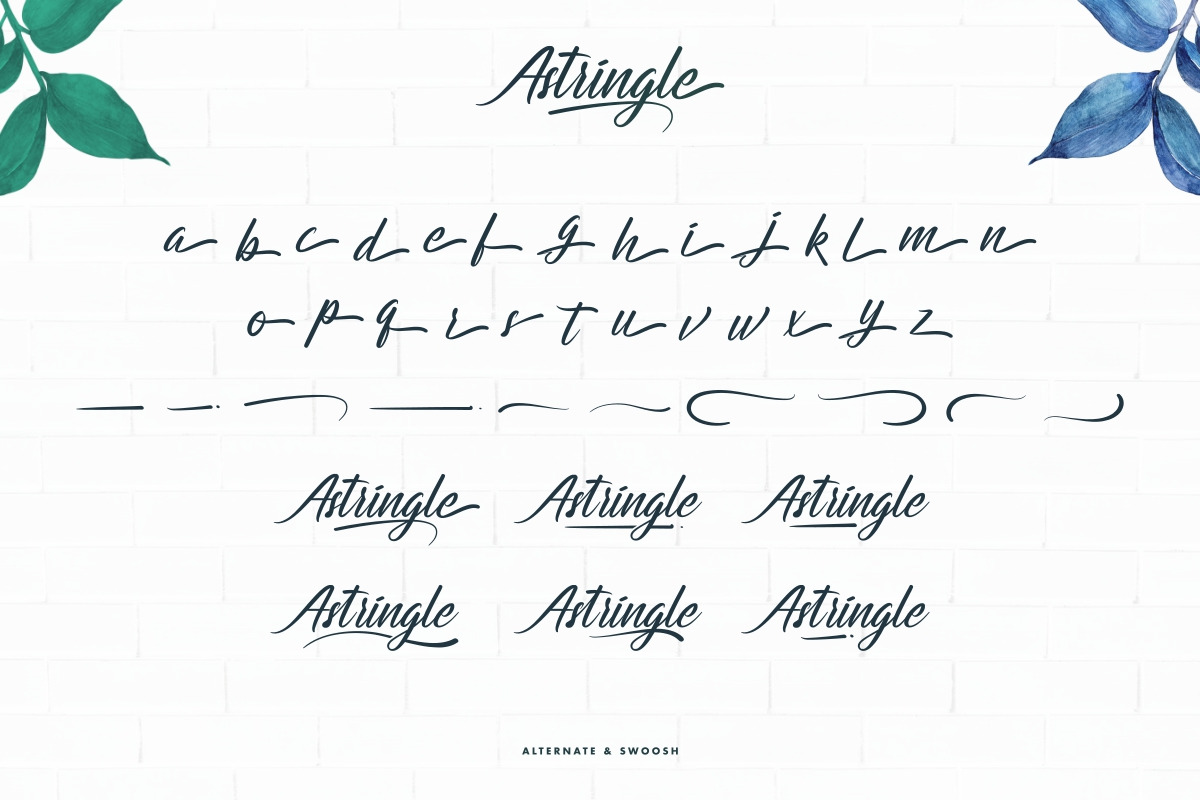 Astringle
a b c d e f g h i j k l m n
o p q r s t u v w x y z
Astringle Astringle Astringle
Astringle Astringle Astringle
ALTERNATE & SWOOSH